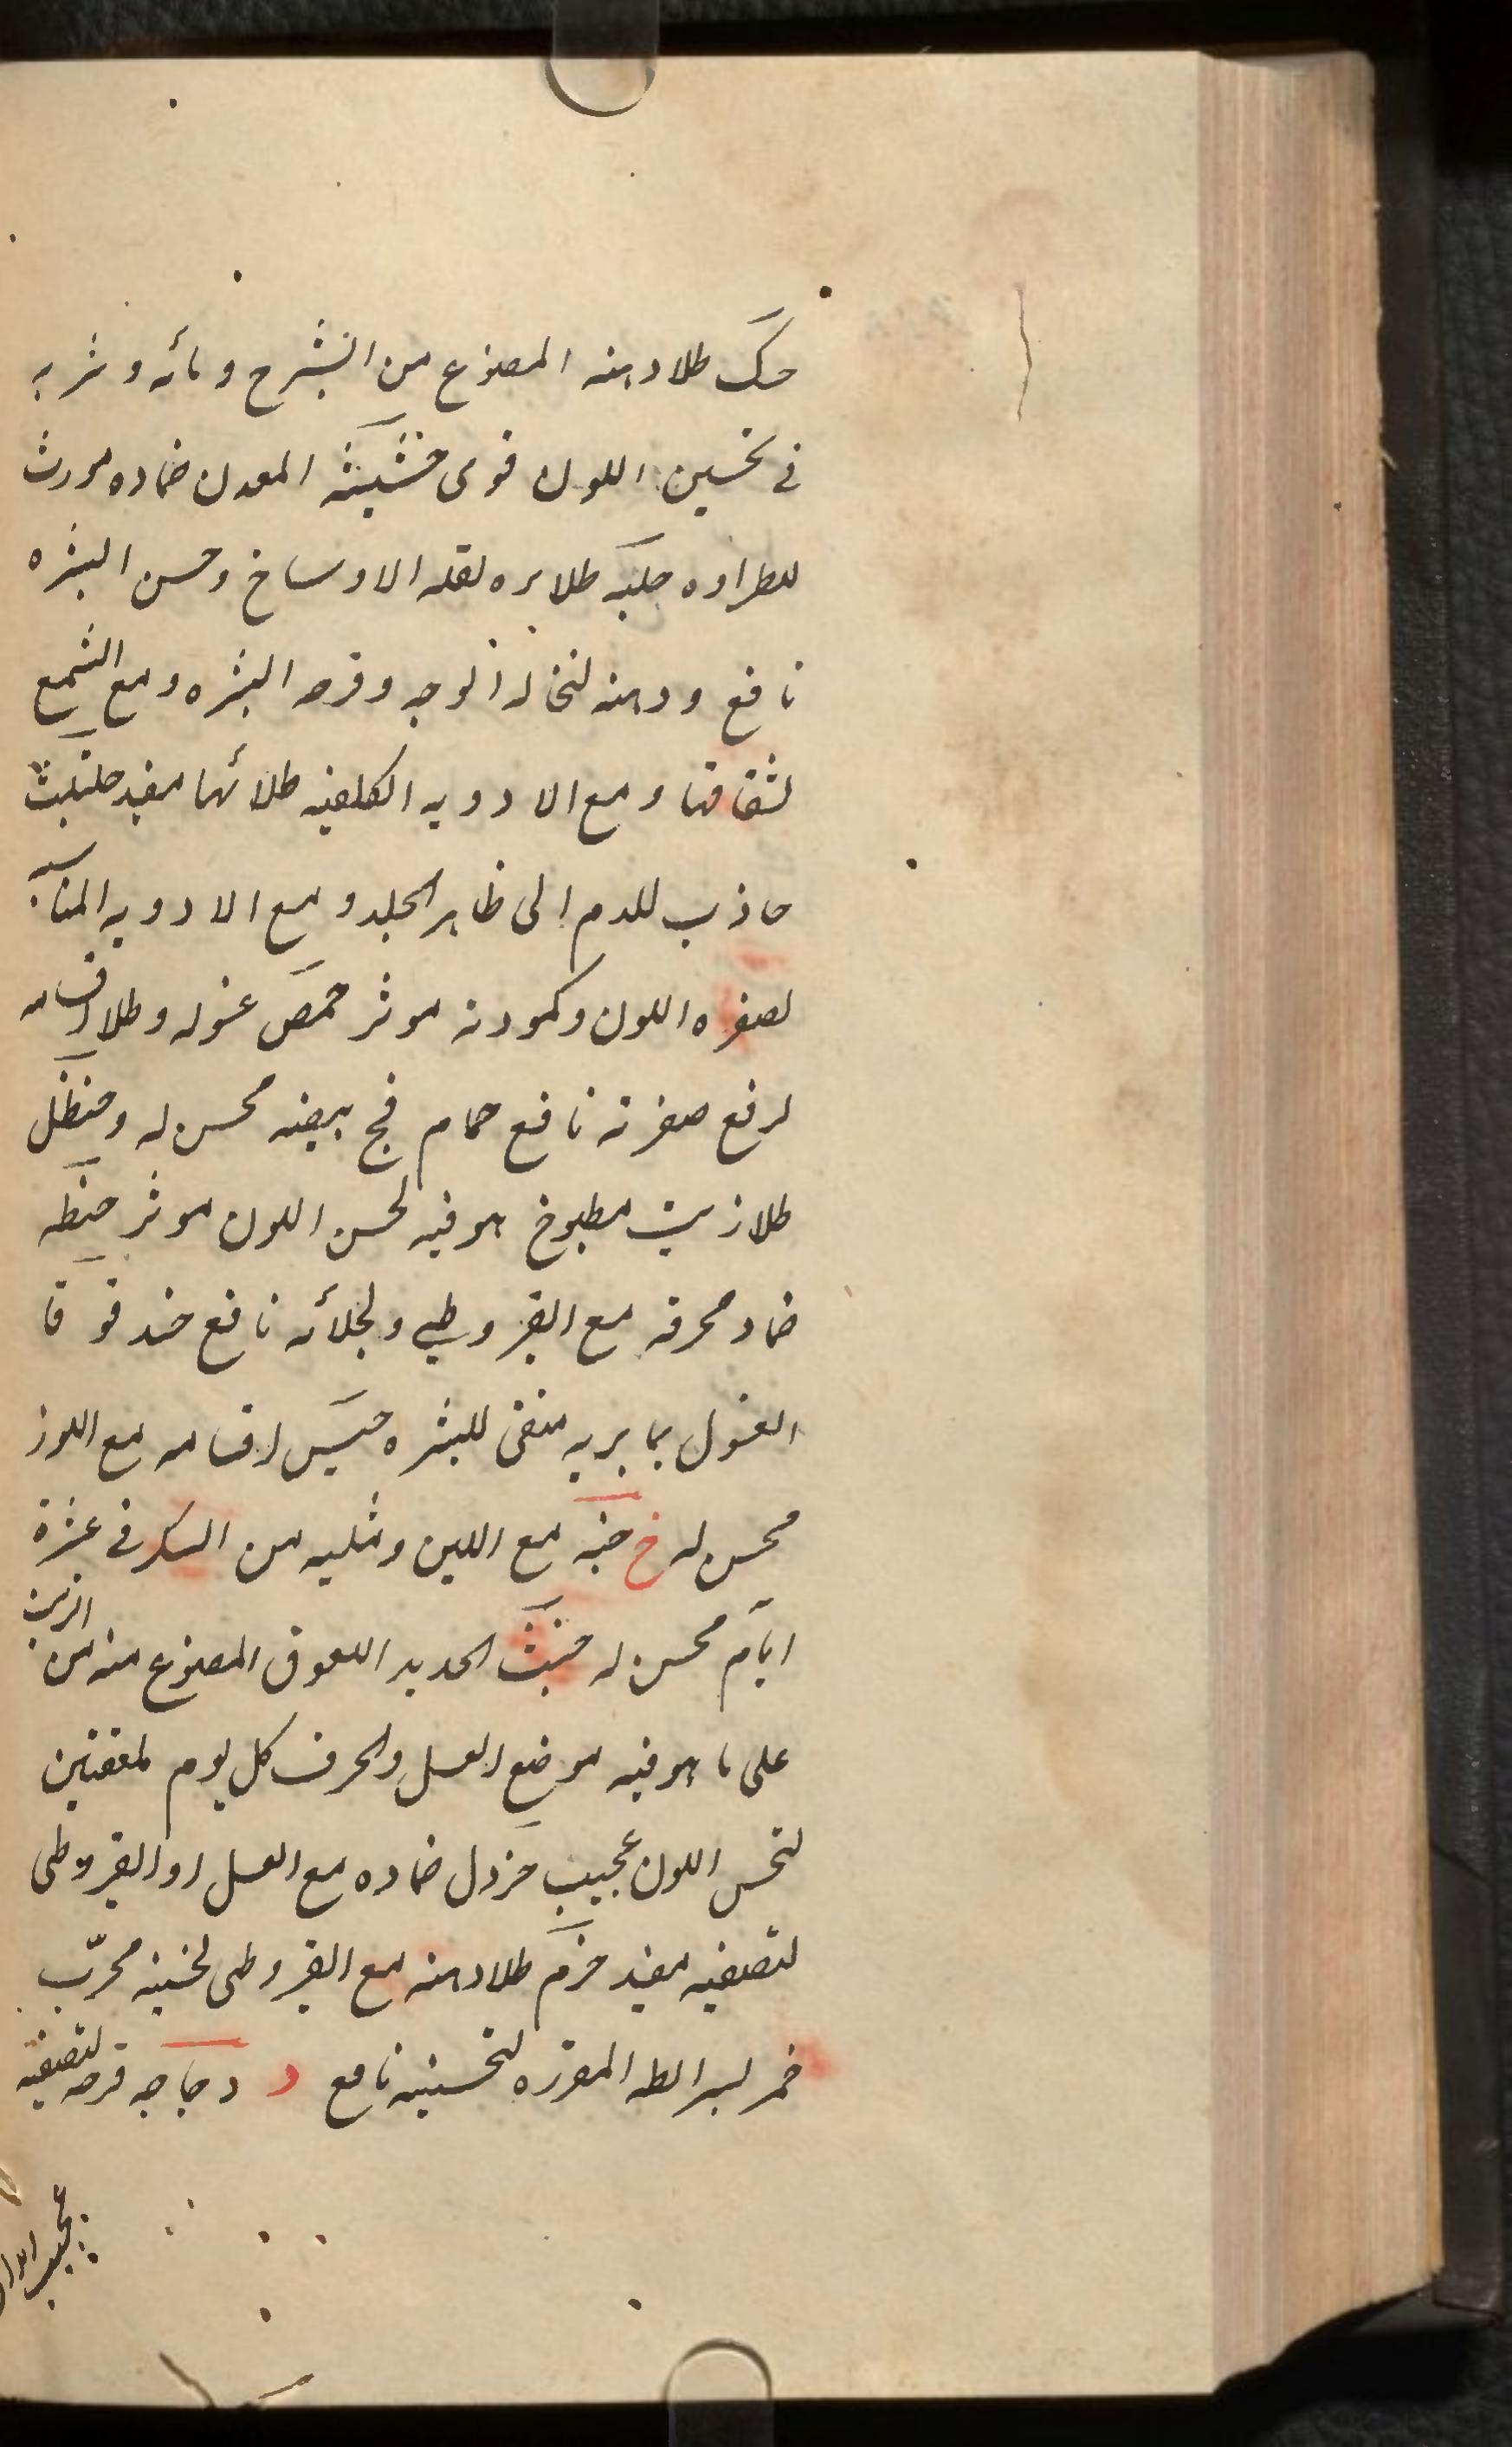 حسك طلا دهنه المصنوع من الشيرج ومائه وشربه
فى تحسين اللون قوى حشيشه المعدن ضماده مورث
للطراوه حلبه طلا بزره لقلع الاوساخ وحسن البشره
نافع ودهنه لنخاله الوجه وقرحه البشره ومع الشمع
لشقاقها ومع الادويه الكلفيه طلائها مفيد حلتيت
جاذب للدم الى ظاهر الجلد ومع الادويه المناسبه
لصفره اللون وكمودته موثر حمص غسوله وطلا اقسامه
لرفع صفرته نافع حمام فج بيضه محسن له وحنظل
طلا زيت مطبوخ هو فيه لحسن اللون موثر حنطه
ضماد محرقه مع القيروطي ولجلائه نافع حندقوقا
الغسول بما بريه منقى للبشره حيس اقسامه مع اللوز
محسن له خ خبه مع اللبن ومثليه من السكر فى عشرة
ايام محسن له خبث الحديد اللعوق المصنوع منه من الزيت
على ما هو فيه موضع العسل والحرف كل يوم لمعقتين
لتحسن اللون عجيب خردل ضماده مع العسل او القيروطى
لتصفيه مفيد خزم طلا دهنه مع القيروطى لحسنه مجرّب
خمر بشرائطه المقرره لتحسينه نافع د دجاجه قرصه لتصفيته
عجيب